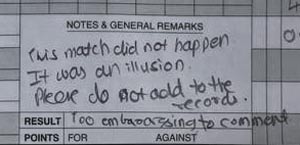 NOTES & GENERAL REMARKS
This match did not happen
It was an illusion.
Please do not add to the
records.
RESULT Too embarassing to comment
POINTS FOR AGAINST